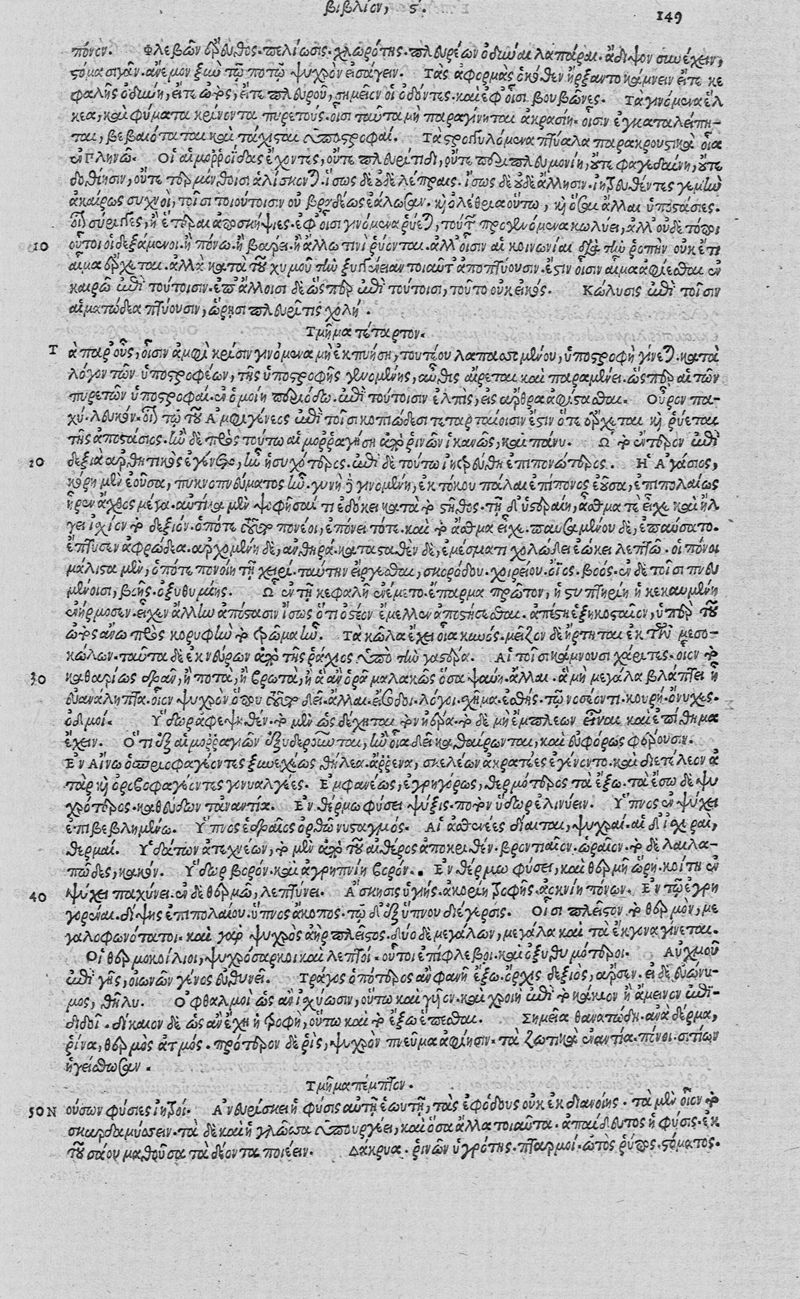 βιβλίον, ϛ. 149
πόνον. Φλεβῶν ἔρευθος. πελίωσις. χλωρότης. πλευρέων ὀδύναι λαπάραι. ἄδιψον συνέχειν,
στόμα σιγᾶν. ἄνεμον ξὺν τῷ ποτῷ ψυχρὸν εἰσάγειν. Τὰς ἀφορμὰς ὁκόθεν ἤρξαντο κάμνειν εἴτε κε
φαλῆς ὀδύνη, εἴτε ὠτὸς, εἴτε πλευροῦ, σημεῖον οἱ ὀδόντες. καὶ ἐφ' οἷσι βουβῶνες. Τὰ γινόμενα ἕλ
κεα, καὶ φύματα κρίνονται πυρετούς. οἷσι ταῦτα μὴ παραγίνηται ἀκρασίη. οἷσιν ἐγκαταλείπη-
ται, βεβαιόταται καὶ τάχισται ὑποστροφαί. Τὰ στρογγυλόμενα πτύαλα παρακρουστικὰ οἷα
ἐν Πληνῶ. Οἱ αἱμοῤῥοΐδας ἔχοντες, οὔτε πλευρίτιδι, οὔτε περιπλευμονίη, οὔτε φαγεδαίνη, οὔτε
δοθίησιν, οὔτε τερμίνθοισι ἁλίσκονται. ἴσως δὲ οὐδὲ λέπραις. ἴσως δὲ οὐδὲ ἄλλησιν. ἰητρευθέντες γε μὴν
ἀκαίρως συχνοὶ, τοῖσι τοιούτοισιν οὐ βραδέως ἑάλωσαν. καὶ ὀλέθρια οὕτω, καὶ ὅσαι ἄλλαι ὑποστάσιες.
οἷον σύριγγες, ἢ ἑτέρων ἀποσκήψιες. ἐφ' οἷσι γινόμενα ῥύεται, τούτων προγενόμενα κωλύει, ἀλλ' οὐδὲ τόποι
10 οὗτοι οἱ δεξάμενοι. ἢ πόνω. ἢ βάρει. ἢ ἄλλω τινὶ ῥύονται. ἄλλοισιν αἱ κοινωνίαι διὰ τὴν ῥοπὴν οὐκ ἔτι
αἷμα ἔρχεται. ἀλλὰ κατὰ τοῦ χυμοῦ τὴν ξυγγένειαν τοιαῦτ' ἀποπτύουσιν. ἔστιν οἷσιν αἷμα ἀφίεσθαι ἐν
καιρῷ ἐπὶ τούτοισιν. ἐπ' ἄλλοισι δὲ ὥσπερ ἐπὶ τούτοισι, τοῦτο οὐκ εἰκός. Κώλυσις ἐπὶ τοῖσιν
αἱματώδεα πτύουσιν, ὥρησι πλευρῖτις χολή.
Τμῆμα τέταρτον.
Τὰ παρ' οὖς, οἷσιν ἀμφὶ κρίσιν γινόμενα μὴ ἐκπυήση, τουτέου λαπασσομένου, ὑποστροφὴ γίνεται. κατὰ
λόγον τῶν ὑποστροφέων, τῆς ὑποστροφῆς γενομένης, αὖθις αἴρεται καὶ παραμένει. ὥσπερ αἱ τῶν
πυρετῶν ὑποστροφαὶ. ἐν ὁμοίη περιόδω. ἐπὶ τούτοισιν ἐλπὶς, εἰς ἄρθρα ἀφίστασθαι. Οὖρον πα-
χὺ. λευκὸν. οἷον τῷ τοῦ Ἀμφιγένεος ἐπὶ τοῖσι κοπιώδεσι τεταρταίοισιν ἔστιν ὅτε ἔρχεται καὶ ῥύεται
τῆς ἀποστάσιος. ἢν δὲ πρὸς τούτω αἱμοῤῥαγήση ἀπὸ ῥινῶν ἱκανῶς, καὶ πάνυ. Ὧι τὸ ἔντερον ἐπὶ
20 δεξιὰ ἀρθριτικὸς ἐγένετο, ἦν ἡσυχότερος. ἐπὶ δὲ τούτω ἰητρεύθη ἐπιπονώτερος. Ἡ Ἀγάσιος,
κόρη μὲν ἐοῦσα, πυκνοπνεύματος ἦν. γυνὴ δὲ γενομένη, ἐκ τόκου πάλαι ἐπίπονος ἐοῦσα, ἐπιπολαίως
ἦρεν ἄχθος μέγα. αὐτίκα μὲν ψοφῆσαί τι ἐδόκει κατὰ τὸ στῆθος. τῇ δ' ὑστεραίη, ἄσθμα τε εἶχε καὶ ἤλ
γει ἰσχίον τὸ δεξιόν. ὁπότε τοῦτο πονέοι, ἐπόνει τότε. καὶ τὸ ἄσθμα εἶχε. παυσαμένου δὲ, ἐπαύσατο.
ἔπτυσεν ἀφρώδεα. ἀρχομένη δὲ, ἀνθηρά. καταστάθεν δὲ, ἐμέσματι χολώδει ἐώκει λεπτῷ. οἱ πόνοι
μάλιστα μὲν, ὁπότε πονοίη τῇ χειρί. ταύτην εἴργεσθαι, σκορόδου. χοιρείου. ὄϊος. βοός. ἐν δὲ τοῖσι πνευ
μένοισι, βοῆς. ὀξυθυμίης. Ὧι ἐν τῇ κεφαλῇ ἐνέμετο ἔπαρμα πρῶτον, ἡ στυπτηρίη ἡ κεκαυμένη
ἐνήρμοσεν. εἶχεν ἄλλην ἀπόστασιν ἴσως ὅτι ὀστέον ἔμελλεν ἀποστήσεσθαι. ἀπέστη ἑξηκοσταῖον, ὑπὲρ τοῦ
ὠτὸς ἄνω πρὸς κορυφὴν τὸ τρῶμα ἦν. Τὰ κῶλα ἔχει οἷα κυνός. μεῖζον δὲ ἤρτηται ἐκ τῶν μεσο-
κώλων. ταῦτα δὲ ἐκ νεύρων ἀπὸ τῆς ῥάχιος ὑπὸ τὴν γαστέρα. Αἱ τοῖσι κάμνουσι χάριτες. οἷον τὸ
30 καθαρίως δρᾶν, ἢ ποτὰ, ἢ βρωτὰ, ἢ ἃ ἂν ὁρᾶ μαλακῶς ὅσα ψαύη. ἄλλαι. ἃ μὴ μεγάλα βλάπτει ἢ
εὐανάληπτα. οἷον ψυχρὸν ὅπου τοῦτο δεῖ. ἄλλαι. ἔσοδοι. λόγοι. σχῆμα. ἐσθῆς. τῷ νοσέοντι. κουρὴ. ὄνυχες.
ὀδμοί. Ὕδωρ ἀφεψηθὲν. τὸ μὲν ὡς δέχηται τὸν ἠέρα. τὸ δὲ μὴ ἔμπλεων εἶναι καὶ ἐπίθημα
ἔχειν. Ὅτι ἐξ αἱμοῤῥαγιῶν ἐξυδεροῦνται, ἢν οἷα δεῖ καθαίρωνται, καὶ εὐφόρως φέρουσιν.
Ἐν Αἴνω ὀσπριοφαγέοντες ξυνεχέως θήλεα. ἄῤῥενα, σκελέων ἀκρατέες ἐγένοντο. καὶ διετέλεον ἀ
τὰρ καὶ ὀροβοφαγέοντες γονυαλγέες. Ἐμφανέως, ἐγρηγόρως, θερμότερος τὰ ἔξω. τὰ ἔσω δὲ ψυ
χρότερος. καθεύδων τἀναντία. Ἐν θέρμω φύσει ψύξις. ποτὸν ὕδωρ ἐλινύειν. Ὕπνος ἐν ψύχει
ἐπιβεβλημένω. Ὕπνος ἑδραῖος ὀρθῶν νυσταγμός. Αἱ ἀσθενέες δίαιται, ψυχραί. αἱ δ' ἰσχυραί,
θερμαί. Ὑδάτων ἀτεχνέων, τὸ μὲν ἀπὸ τοῦ αἰθέρος ἀποκριθὲν. βρονταῖον. ὡραῖον. τὸ δὲ λαιλα-
πῶδες, κακόν. Ὕδωρ βορόν. καὶ ἀγρυπνίη βορόν.. Ἐν θέρμω φύσει, καὶ θερμῇ ὥρῃ. κοίτη ἐν
40 ψύχει παχύνει. ἐν δὲ θερμῷ, λεπτύνει. Ἄσκησις ὑγιής. ἀκορίη τροφῆς. ἀοκνίη πόνων. Ἐν τῷ ἐγρη
γορέναι. δίψης ἐπιπολαίου. ὕπνος ἄκοπος. τῷ δ' ἐξ ὕπνου διέγερσις. Οἷσι πλεῖστον τὸ θερμόν, με
γαλοφωνότατοι. καὶ γὰρ ψυχρὸς ἀὴρ πλεῖστος. δύο δὲ μεγάλων, μεγάλα καὶ τὰ ἔκγονα γίνεται.
Οἱ θερμοκοίλιοι, ψυχρόσαρκοι καὶ λεπτοί. οὗτοι ἐπίφλεβοι. καὶ ὀξυθυμότεροι. Αὐχμοῦ
ἐπὶ γῆς, οἰωνῶν γένος εὐθυνεῖ. Τράγος ὁπότερος ἂν φανῇ ἔξω. ὄρχις δεξιὸς, ἄρσεν. εἰ δὲ εὐώνυ-
μος, θῆλυ. Ὀφθαλμοὶ ὡς ἂν ἰσχύωσιν, οὕτω καὶ γυῖον. καὶ χροιὴ ἐπὶ τὸ κάκιον ἢ ἄμεινον ἐπι-
διδοῖ. δίκαιον δὲ ὡς ἂν ἔχῃ ἡ τροφὴ, οὕτω καὶ τὸ ἔξω ἕπεσθαι. Σημεῖα θανατώδη. ἀνὰ δέρμα,
ῥῖνα, θερμὸς ἀτμός. πρότερον δὲ ῥὶς, ψυχρὸν πνεῦμα ἀφίησιν. τὰ ζωτικὰ ἐναντία. πόνοι. σιτίων
ἡγείσθωσαν.
Τμῆμα πέμπτον.
50 Νούσων φύσιες ἰητροί. Ἀνευρίσκει ἡ φύσις αὐτὴ ἑωυτῇ, τὰς ἐφόδους οὐκ ἐκ διανοίης. τὰ μὲν οἷον τὸ
σκαρδαμύσσειν. τὰ δὲ καὶ ἡ γλῶσσα ὑπουργέει, καὶ ὅσα ἄλλα τοιαῦτα. ἀπαίδευτος ἡ φύσις. ἐκ
τοῦ σάου μαθοῦσα τὰ δέοντα ποιέειν. Δάκρυα. ῥινῶν ὑγρότης. πταρμοί. ὠτὸς ῥύπος. στόματος.